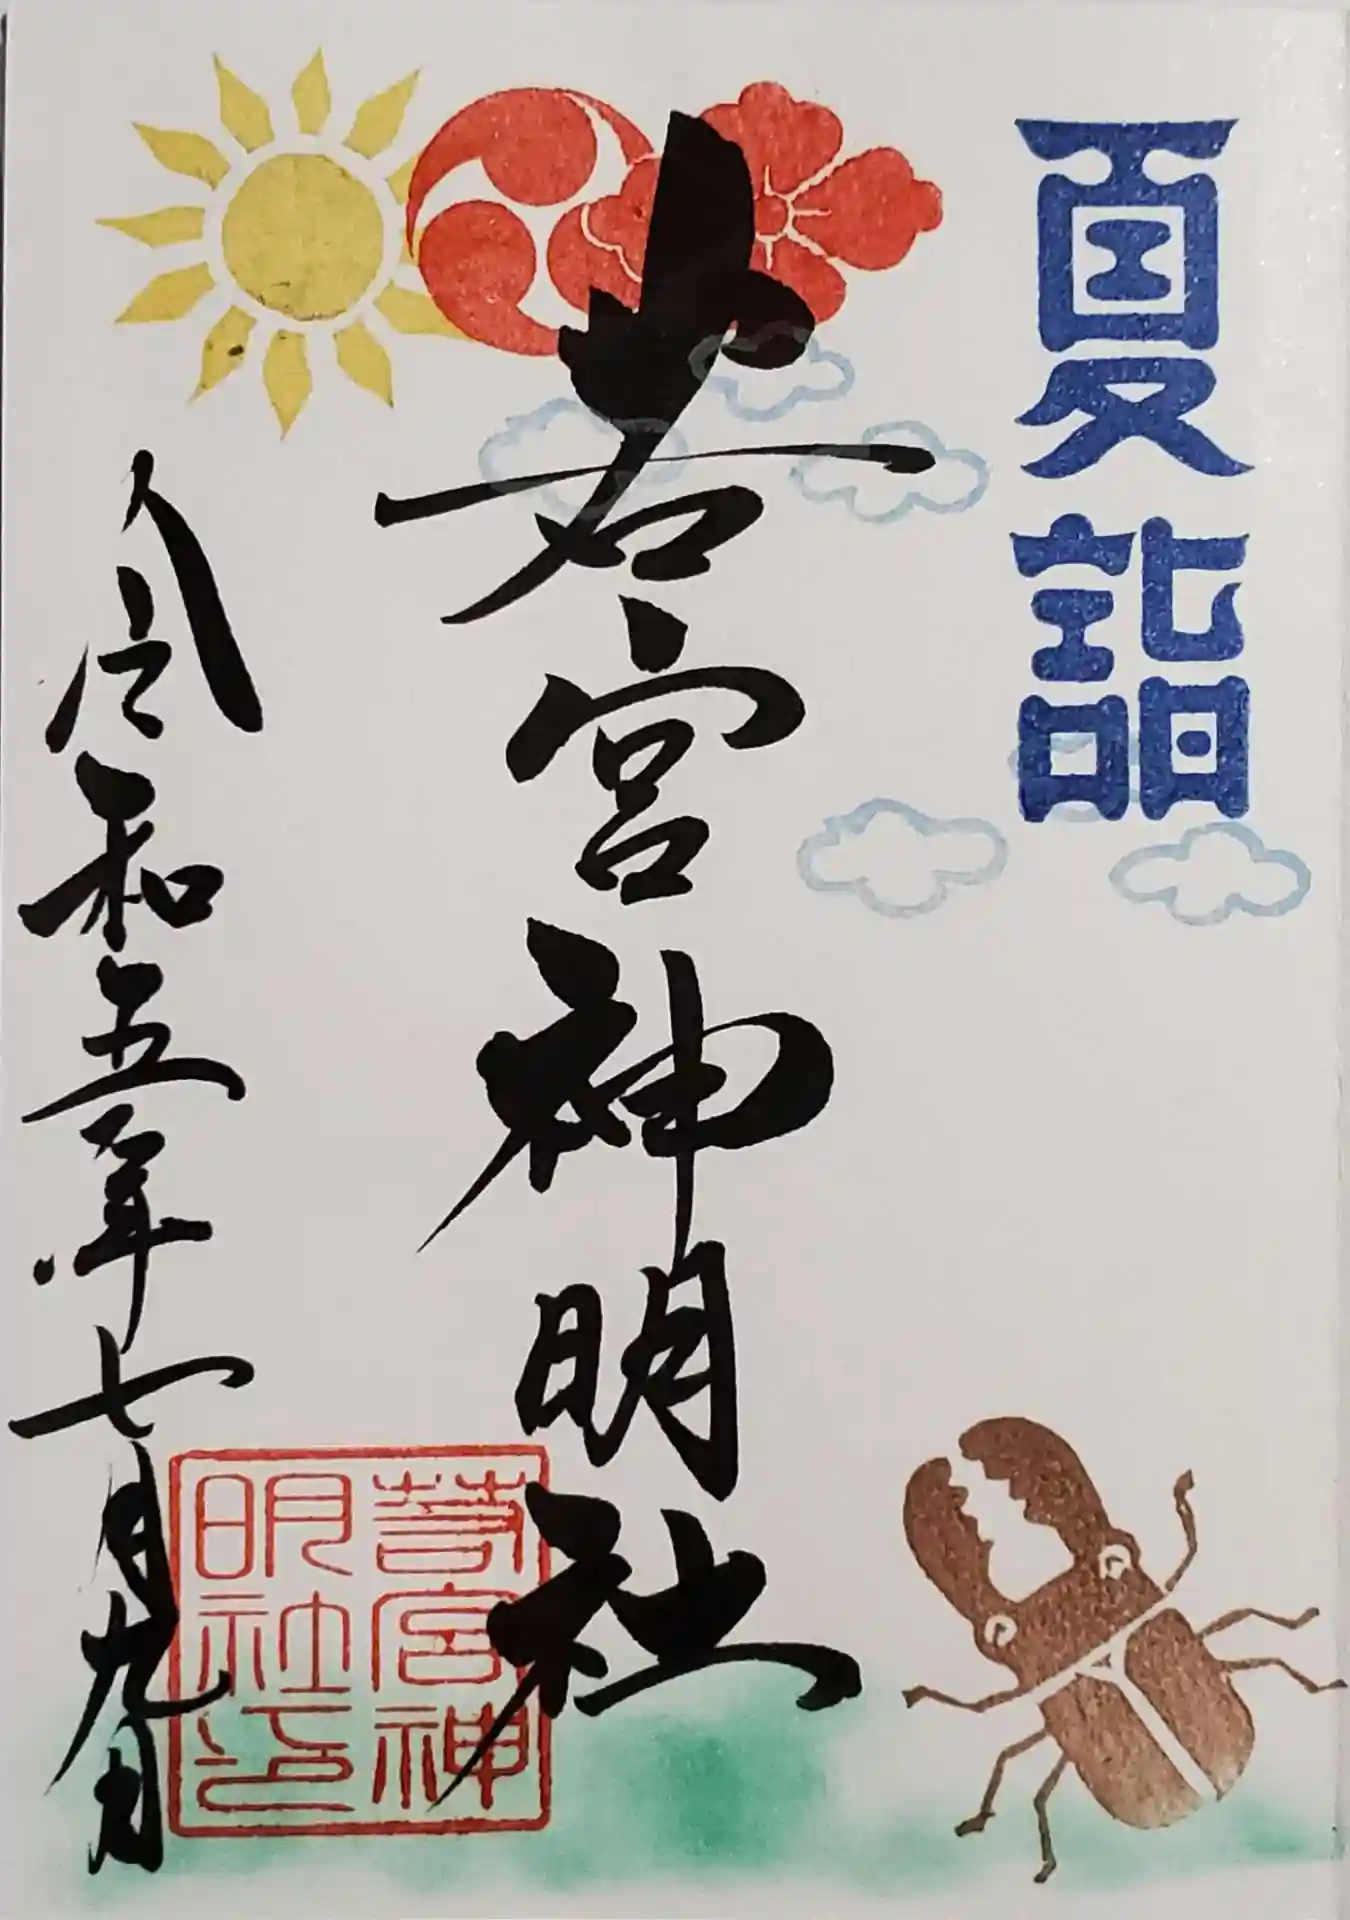 夏詣
若宮神明社
令和五年七月九日
若宮神
明社印